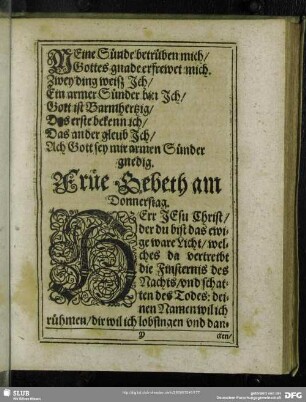 MEine Sünde betrüben mich/
Gottes gnade erfrewet mich.
Zwey ding weiß Ich/
Ein armer Sünder bin Ich/
Gott ist Barmhertzig/
Das erste bekenn ich/
Das ander gleub Ich/
Ach Gott sey mir armen Sünder
gnedig.
Früe Gebeth am
Donnerstag.
HErr JEsu Christ/
der du bist das ewi-
ge ware Licht/ wel-
ches da vertreibt
die Finsternis des
Nachts/ vnd schat-
ten des Todes: dei-
nen Namen wil ich
rühmen/ dir wil ich lobsingen vnd dan-
cken/
SLUB
Wir führen Wissen.
DFG